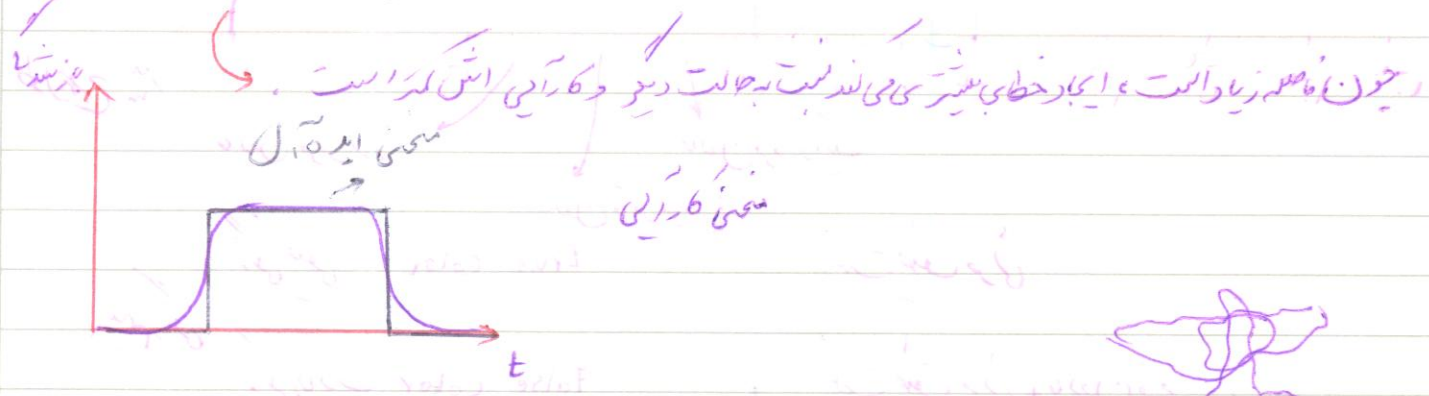 چون فاصله زیاد است، ایجاد خطای بیشتری می کند نسبت به حالت دیگر و کارآیی اش کمتر است.
منحنی ایده آل
منحنی کارآیی
t